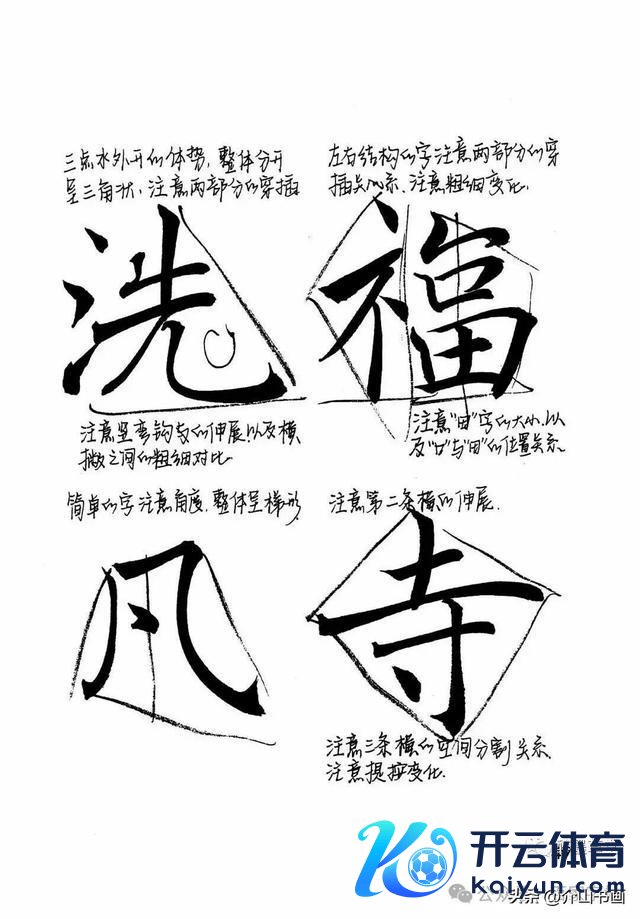 三点水外开的体势,整体分开
呈三角状,注意两部分的穿插
左右结构的字注意两部分的穿
插关的系.注意粗细变化.
洗
福
注意竖弯钩的伸展以及横
撇之间的粗细对比
注意“田”字的大小.以
及“口”与“田”的位置关系
简单的字注意角度.整体呈梯形.
注意第二条横的伸展.
凡
寺
注意三条横的空间分割关系.
注意提按变化.
开云体育
kaiyun.com
公众
头条 @介山书画